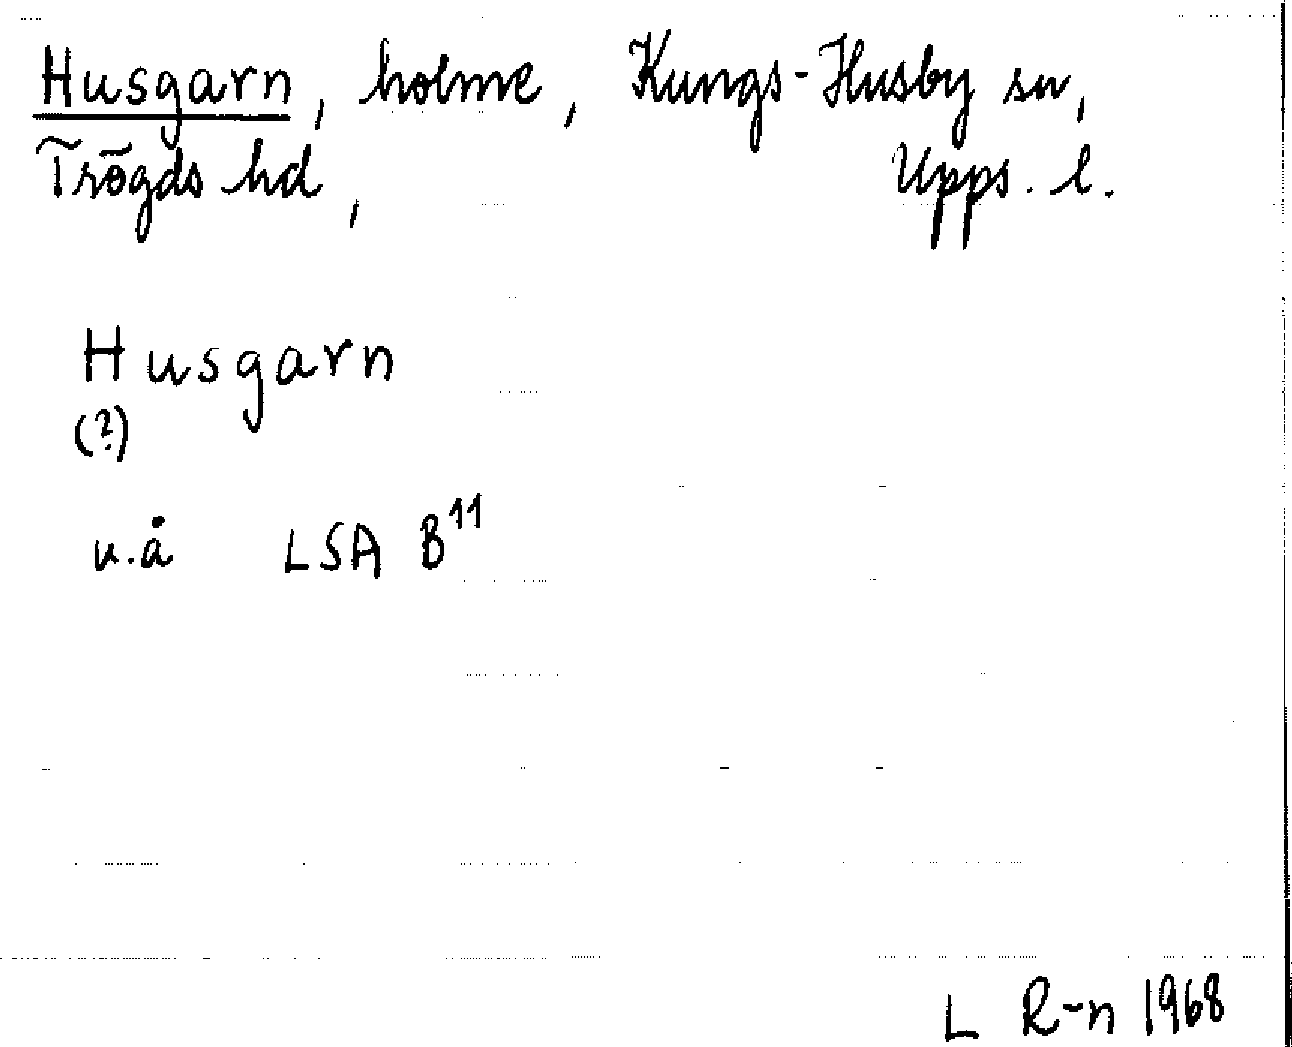 Husgarn, holme, Kungs-Husby sn,
Trögds hd, Upps. l.
Husgarn
(?)
u.å LSA B¹¹
L R-n 1968